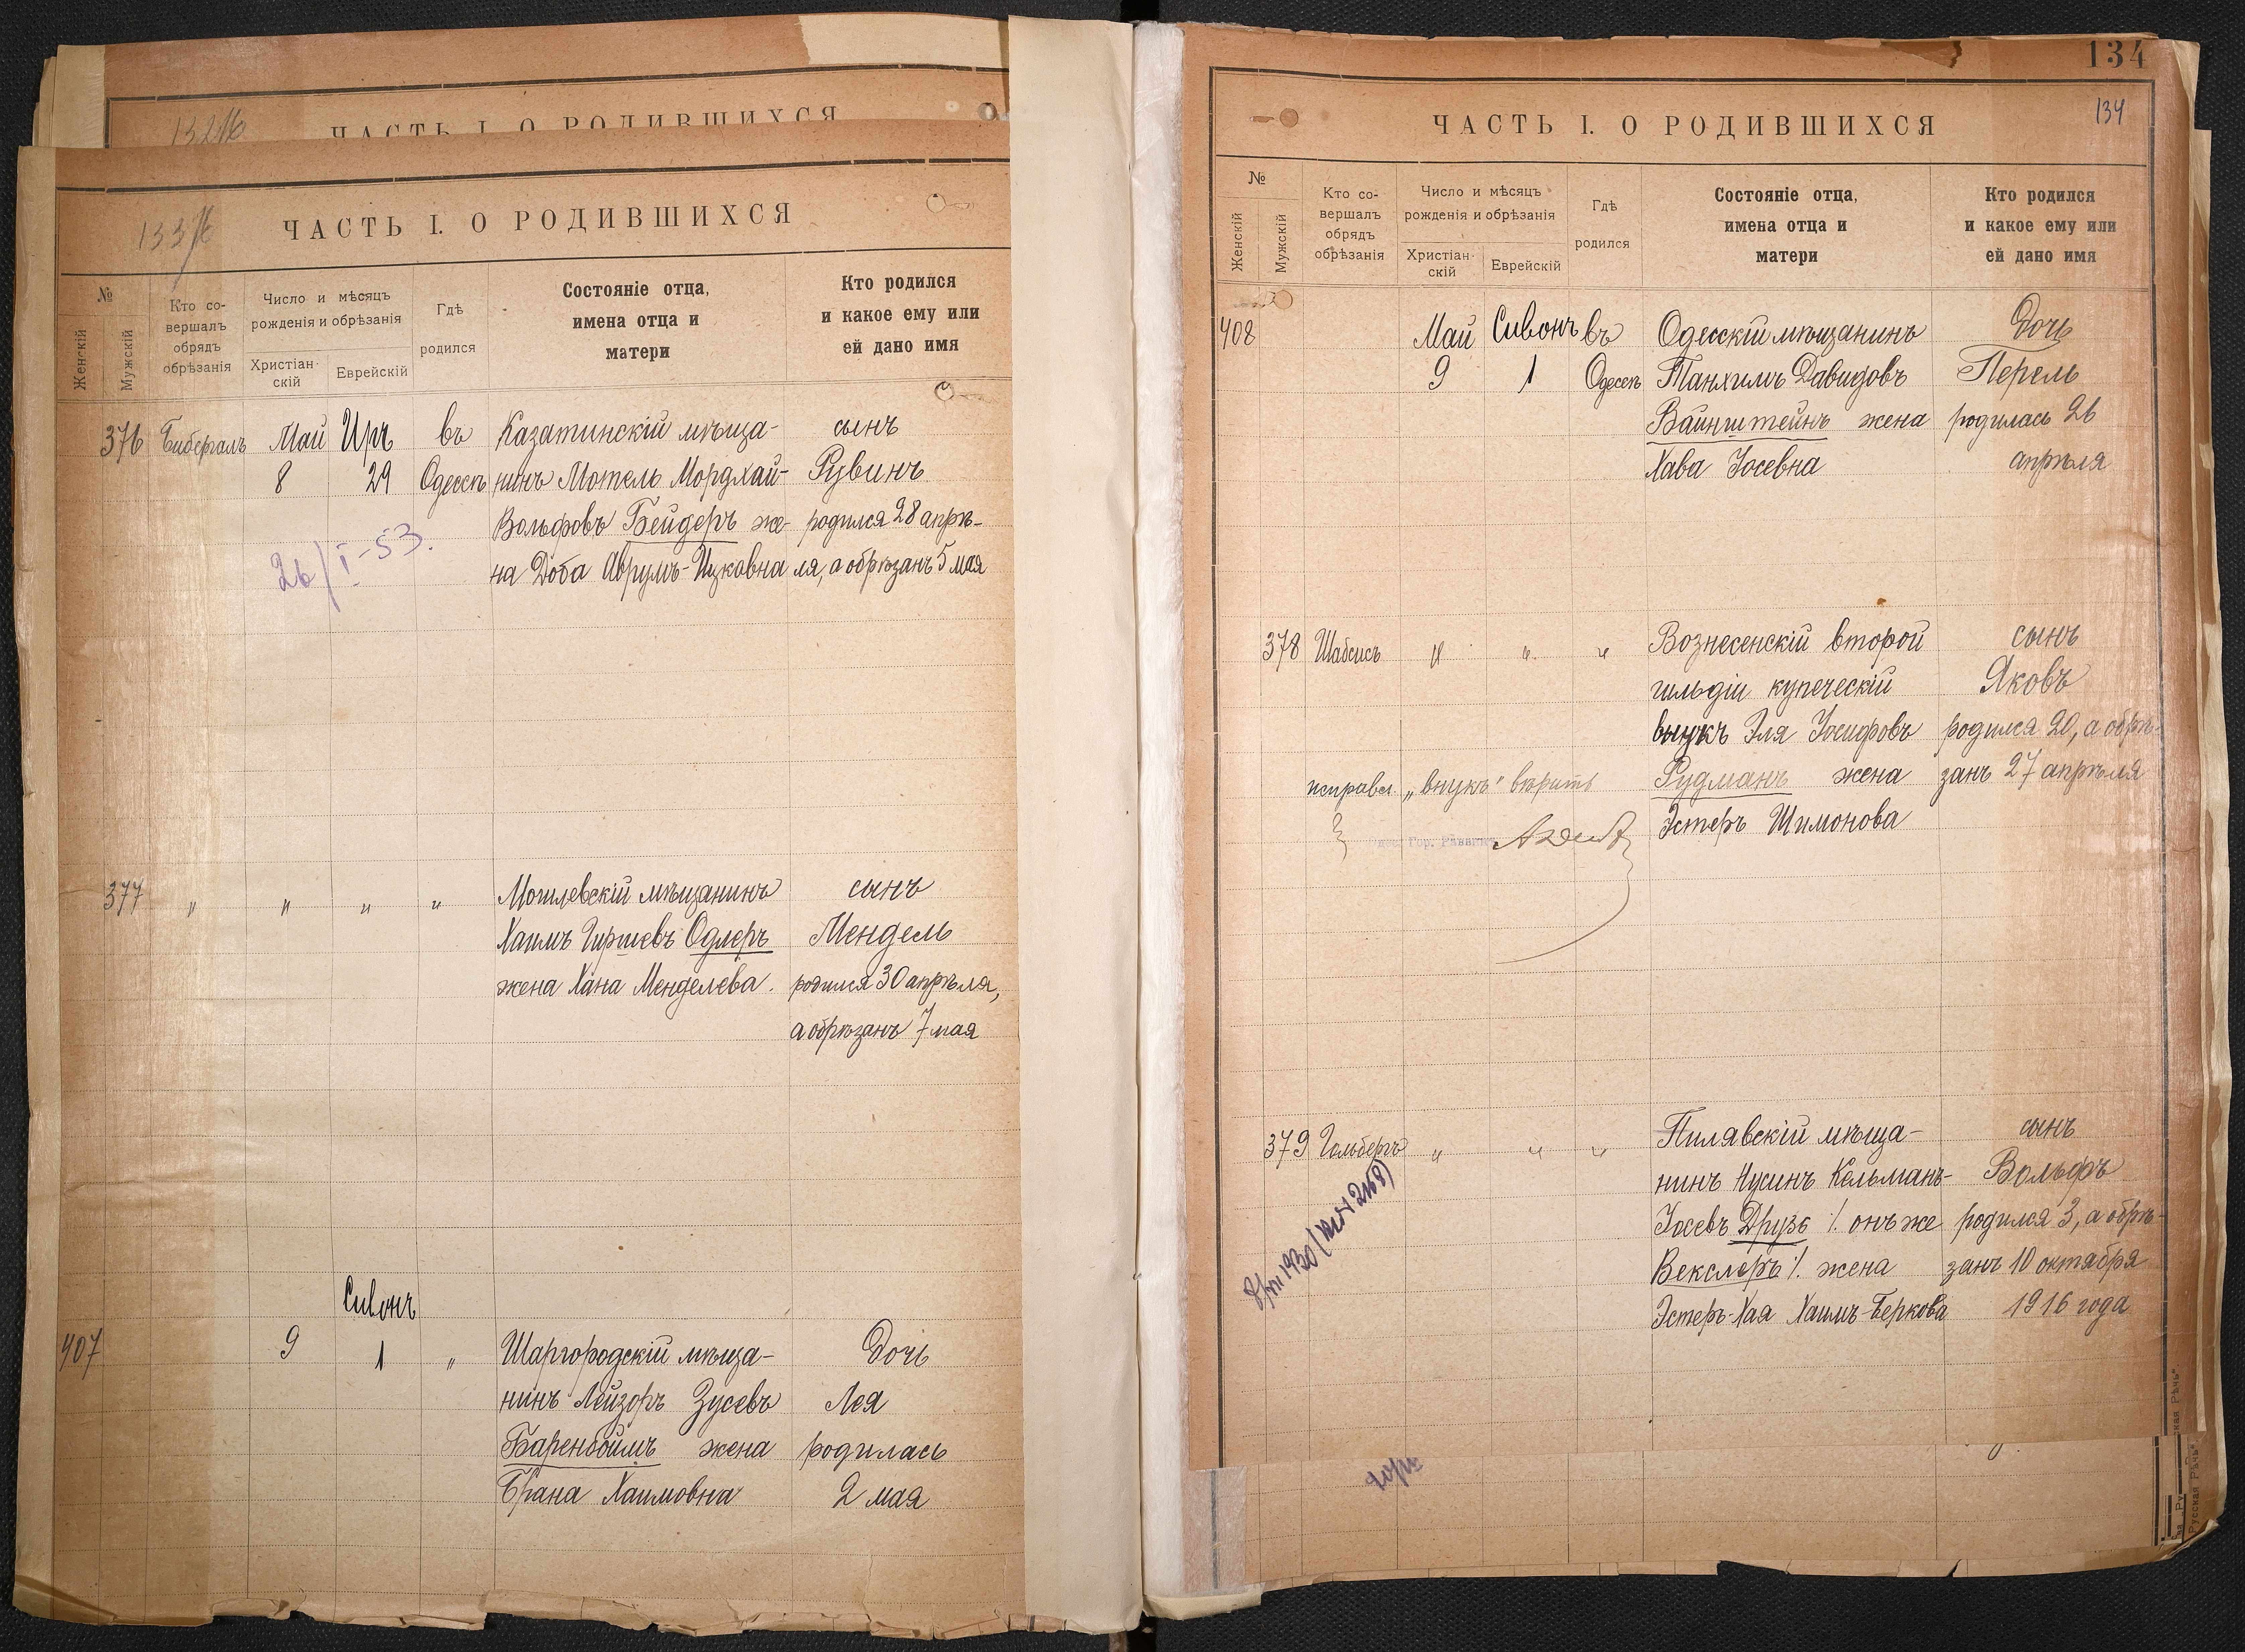 132 об
ЧАСТЬ I. О РОДИВШИХСЯ
133 об
ЧАСТЬ I. О РОДИВШИХСЯ
№
Женскій
Мужскій
Кто со-
вершалъ
обрядъ
обрѣзанія
Число и мѣсяцъ
рожденія и обрѣзанія
Христіан-
скій
Еврейскій
Гдѣ
родился
Состояніе отца,
имена отца и
матери
Кто родился
и какое ему или
ей дано имя
376 Бибергалъ Май Иръ въ Казатинскій мѣща- сынъ
8 29 Одессѣ нинъ Мотель Мордхай- Рувинъ
Вольфовъ Бейдеръ же- родился 28 апрѣ-
на Доба Аврумъ-Ицковна ля, а обрѣзанъ 5 мая
26/I-53.
377 " " " " Могилевскій мѣщанинъ сынъ
Хаимъ Гиршевъ Одлеръ Мендель
жена Хана Менделева. родился 30 апрѣля,
а обрѣзанъ 7 мая
Сивонъ
407 9 1 " Шаргородскій мѣща- Дочь
нинъ Лейзоръ Зусевъ Лея
Баренбоймъ жена родилась
Брана Хаимовна 2 мая
134
134
ЧАСТЬ I. О РОДИВШИХСЯ
№
Женскій
Мужскій
Кто со-
вершалъ
обрядъ
обрѣзанія
Число и мѣсяцъ
рожденія и обрѣзанія
Христіан-
скій
Еврейскій
Гдѣ
родился
Состояніе отца,
имена отца и
матери
Кто родился
и какое ему или
ей дано имя
408 Май Сивонъ въ Одесскій мѣщанинъ Дочь
9 1 Одессѣ Танхимъ Давидовъ Перель
Вайнштейнъ жена родилась 26
Хава Іосевна апрѣля
378 Шабсисъ " " " Вознесенскій второй сынъ
гильдіи купеческій Яковъ
внукъ Эля Іосифовъ родился 20, а обрѣ-
исправл. „внукъ" вѣрить Рудманъ жена занъ 27 апрѣля
Гор. Раввинъ Эстеръ Шимонова
379 Гольбергъ " " " Пилявскій мѣща- сынъ
нинъ Нусинъ Кельманъ- Вольфъ
Іосевъ Друзь /. онъ же родился 3, а обрѣ-
Векслеръ /. жена занъ 10 октября
Эстеръ-Хая Хаимъ-Беркова 1916 года
Русская Рѣчь"